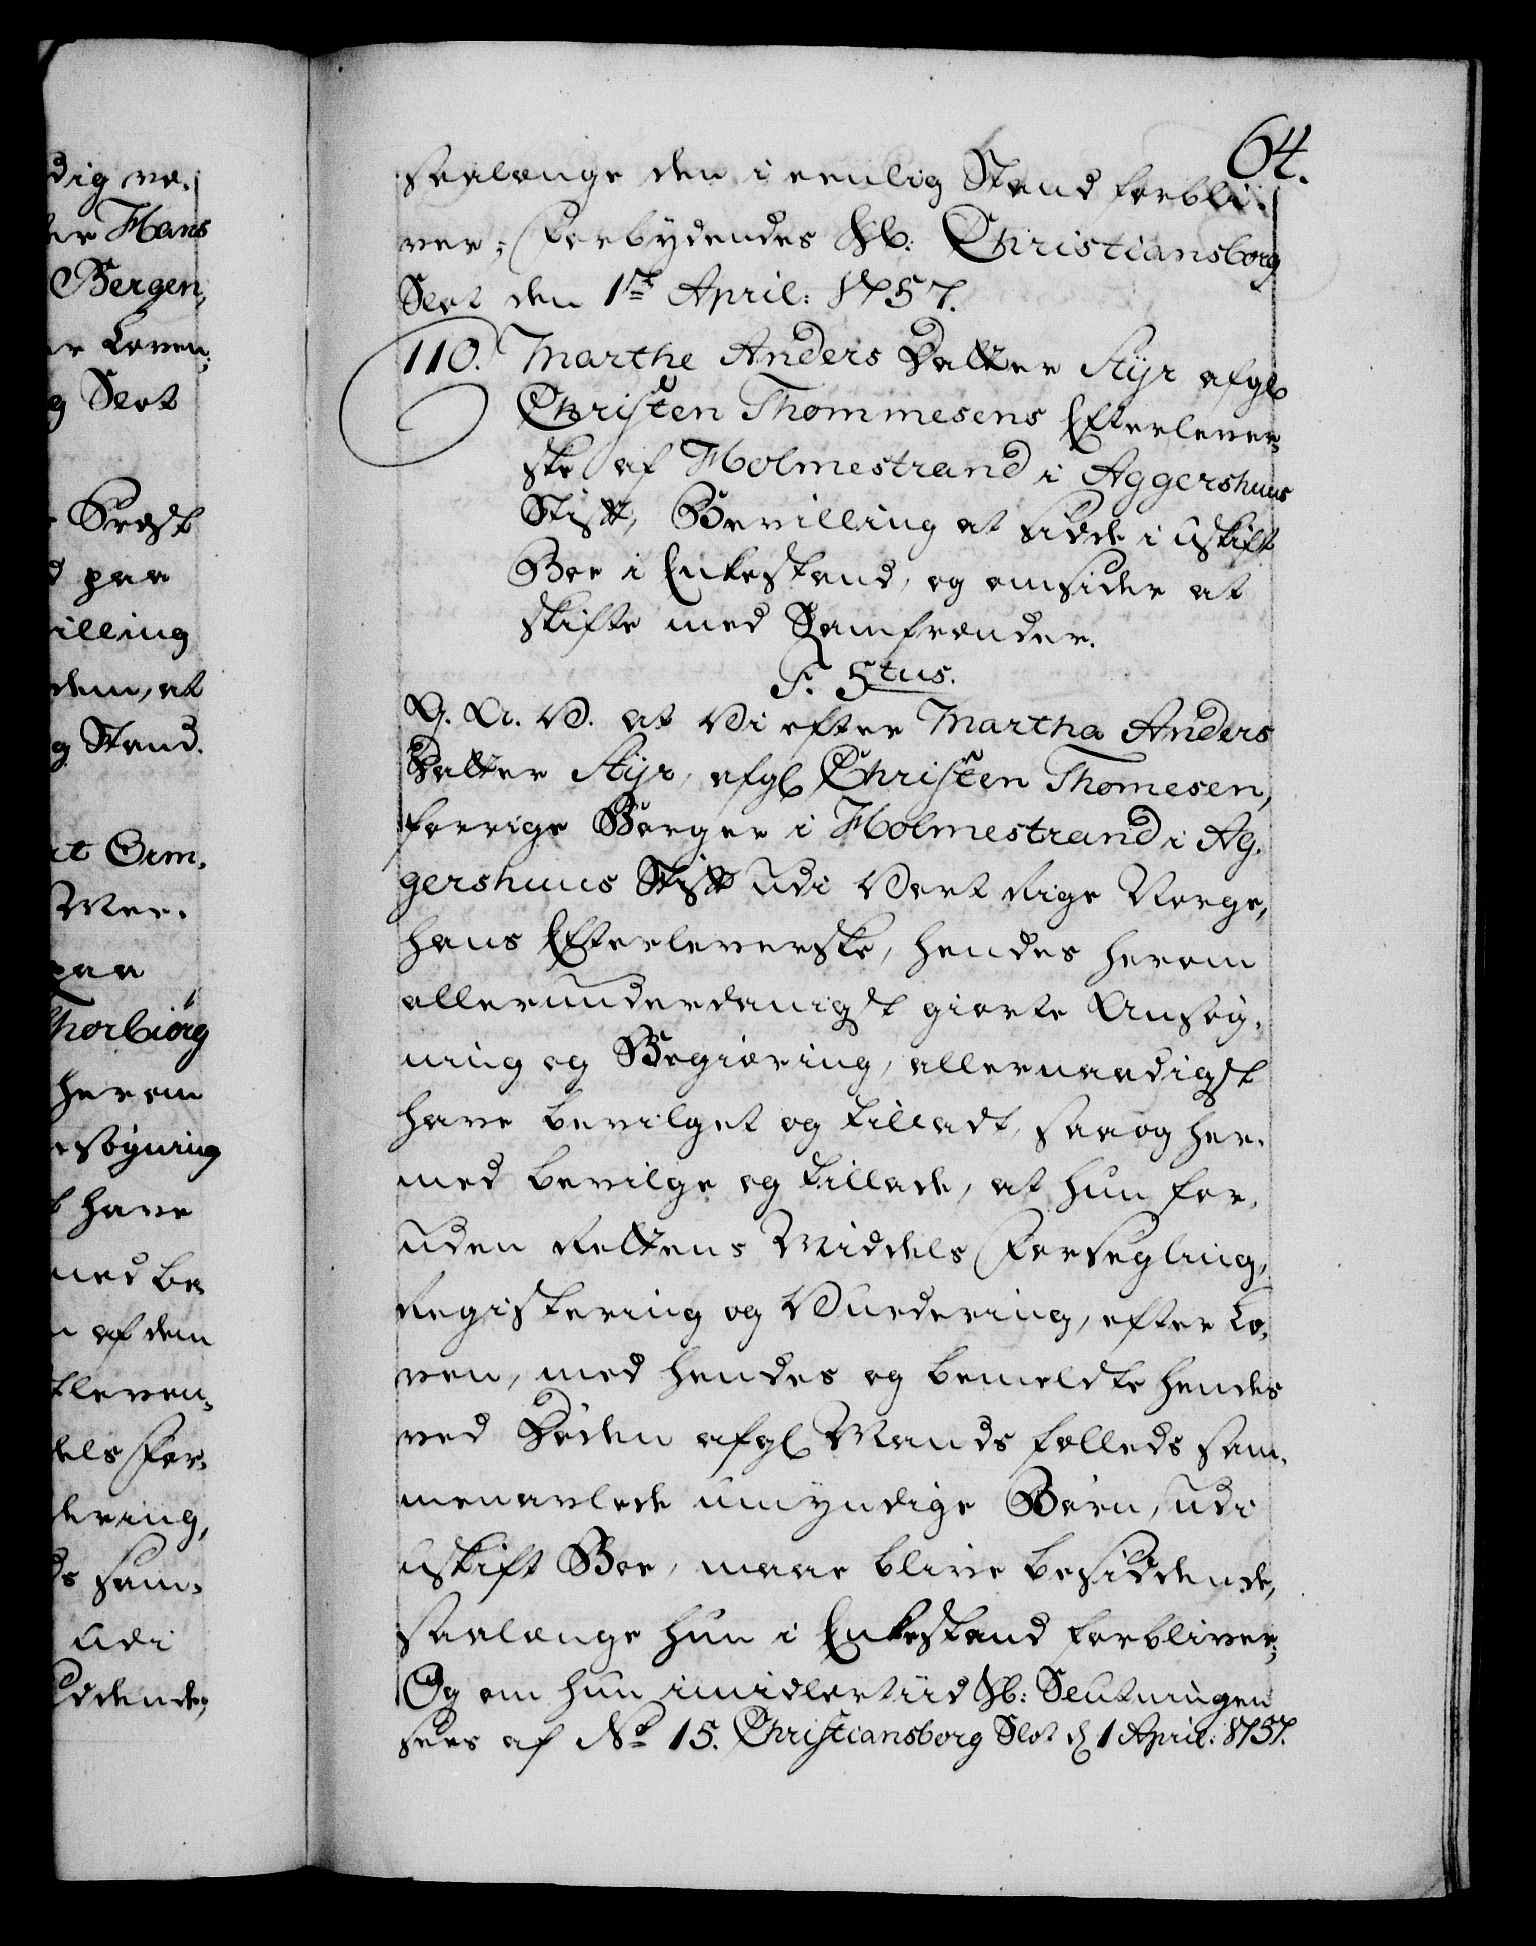 64.
saalænge den i eenlig Stand forbli-
ver; Forbydendes &b: Christiansborg
Slot den 1ste April: 1757.
110. Marthe Anders Datter Styr afgl.
Christen Thommesens Efterlever-
ske af Holmestrand i Aggershuus
Stift, Bevilling at sidde i uskift
Boe i Enkestand, og omsider at
skifte med Samfrænder.
F. 5tus.
G. A. V. at Vi efter Martha Anders
Datter Styr, afgl. Christen Thomesen,
forrige Borger i Holmestrand i Ag-
gershuus Stift udi Vort Rige Norge,
hans Efterleverske, hendes herom
allerunderdanigst giorte Ansøg-
ning og Begiæring, allernaadigst
have bevilget og tilladt, saa og her-
med bevilge og tillade, at hun for-
uden Rettens Middels Forsegling,
Registering og Vurdering, efter Lo-
ven, med hendes og bemeldte hendes
ved Døden afgl. Mands fælleds sam-
menavlede umyndige Børn, udi
uskift Boe, maae blive besiddende,
saalænge hun i Enkestand forbliver;
Og om hun imidlertiid &b: Slutningen
sees af No 15. Christiansborg Slot d. 1 April: 1757.
dig ve-
er Hans
Bergen,
er Loven-
g Slot
Præst
d paa
villing
dem, at
g Stand.
rt Orm-
paa
Thorbiørg
herom
nsøgning
t have
med be-
n af dem
tleven-
dels For-
dering,
ds sam-
udi
iddende,